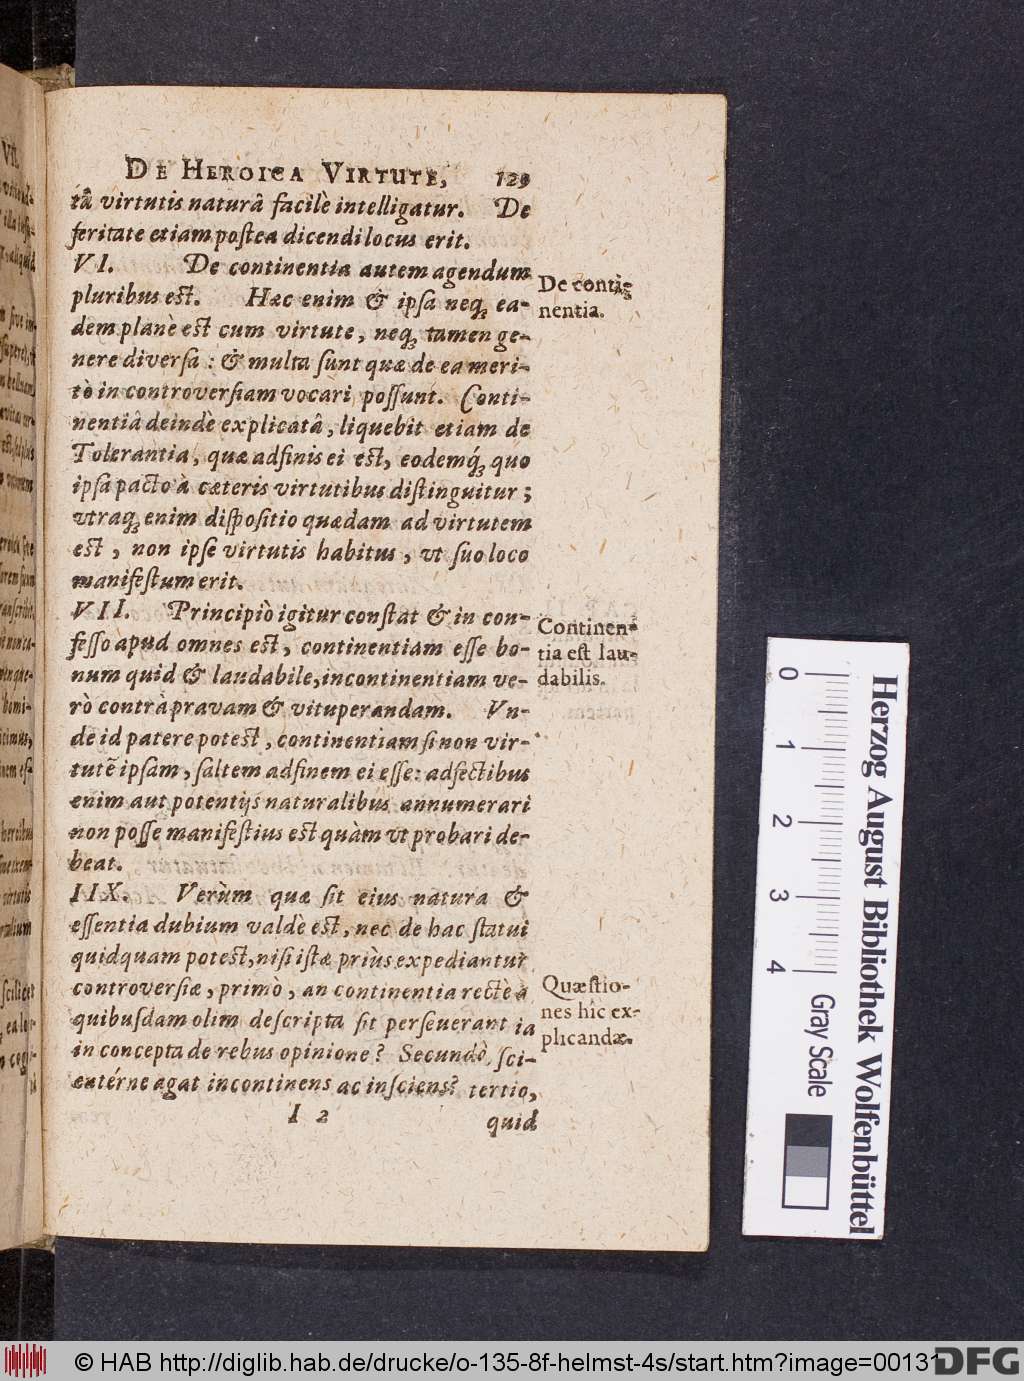 DE HEROICA VIRTUTE, 129
tâ virtutis naturâ facilè intelligatur. De
feritate etiam postea dicendi locus erit.
VI. De continentia autem agendum
pluribus est. Hæc enim & ipsa neq́; ea-
dem planè est cum virtute, neq́; tamen ge-
nere diversa: & multa sunt quæ de ea meri-
tò in controversiam vocari possunt. Conti-
nentiâ deindè explicatâ, liquebit etiam de
Tolerantia, quæ adfinis ei est, eodemq́; quo
ipsa pacto à cæteris virtutibus distinguitur;
vtraq́; enim dispositio quædam ad virtutem
est, non ipse virtutis habitus, vt suo loco
manifestum erit.
De conti-
nentia.
VII. Principiò igitur constat & in con-
fesso apud omnes est, continentiam esse bo-
num quid & laudabile, incontinentiam ve-
rò contrà pravam & vituperandam. Vn-
de id patere potest, continentiam si non vir-
tutẽ ipsam, saltem adfinem ei esse: adfectibus
enim aut potentijs naturalibus annumerari
non posse manifestius est quàm vt probari de-
beat.
Continen-
tia est lau-
dabilis.
IIX. Verùm quæ sit eius natura &
essentia dubium valdè est, nec de hac statui
quidquam potest, nisi istæ priùs expediantur
controversiæ, primò, an continentia rectè à
quibusdam olim descripta sit perseuerantia
in concepta de rebus opinione? Secundò, sci-
entérne agat incontinens ac insciens? tertio,
Quæstio-
nes hîc ex-
plicandæ.
I 2 quid
0 1 2 3 4
Gray Scale
Herzog August Bibliothek Wolfenbüttel
© HAB http://diglib.hab.de/drucke/o-135-8f-helmst-4s/start.htm?image=00131
DFG